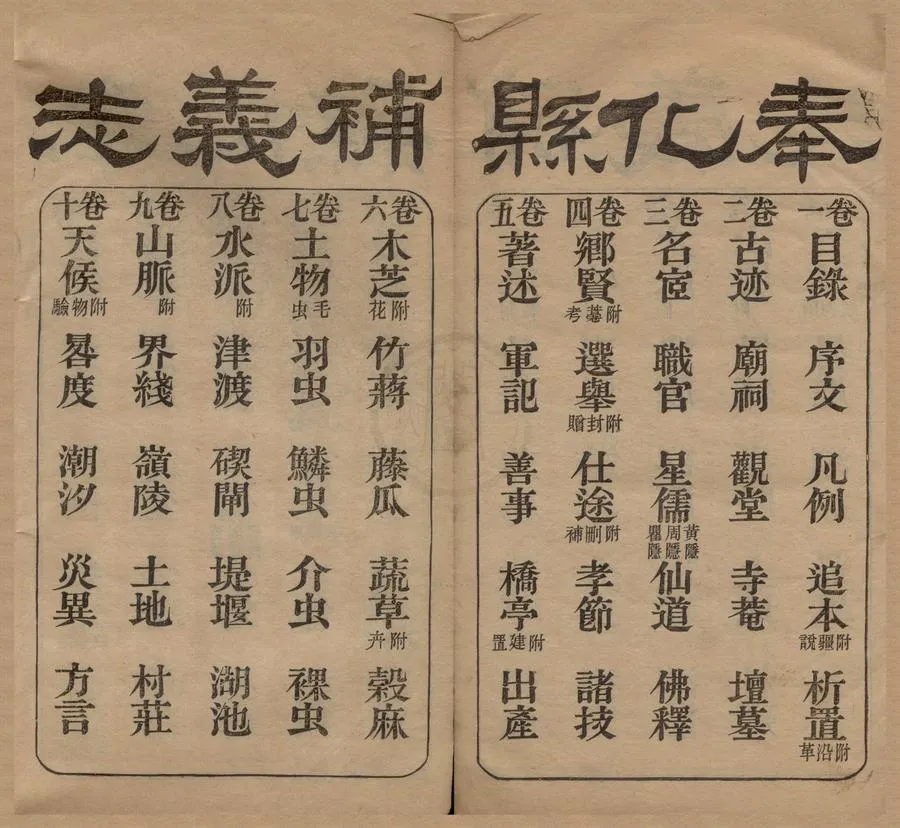 奉化縣
補義志
卷一
目錄
序文
凡例
追本
附疆說
析置
附沿革
卷二
古迹
廟祠
觀堂
寺菴
壇墓
卷三
名宦
職官
星儒
黃隱周隱瞿隱
仙道
佛釋
卷四
鄉賢
附墓考
選舉
附封贈
仕途
附刪補
孝節
諸技
卷五
著述
軍記
善事
橋亭
附建置
出產
卷六
木芝
附花
竹蔣
藤瓜
蔬草
附卉
穀麻
卷七
土物
毛虫
羽虫
鱗虫
介虫
裸虫
卷八
水派
附
津渡
碶閘
堤堰
湖池
卷九
山脈
附
界綫
嶺陵
土地
村莊
卷十
天候
附物驗
晷度
潮汐
災異
方言